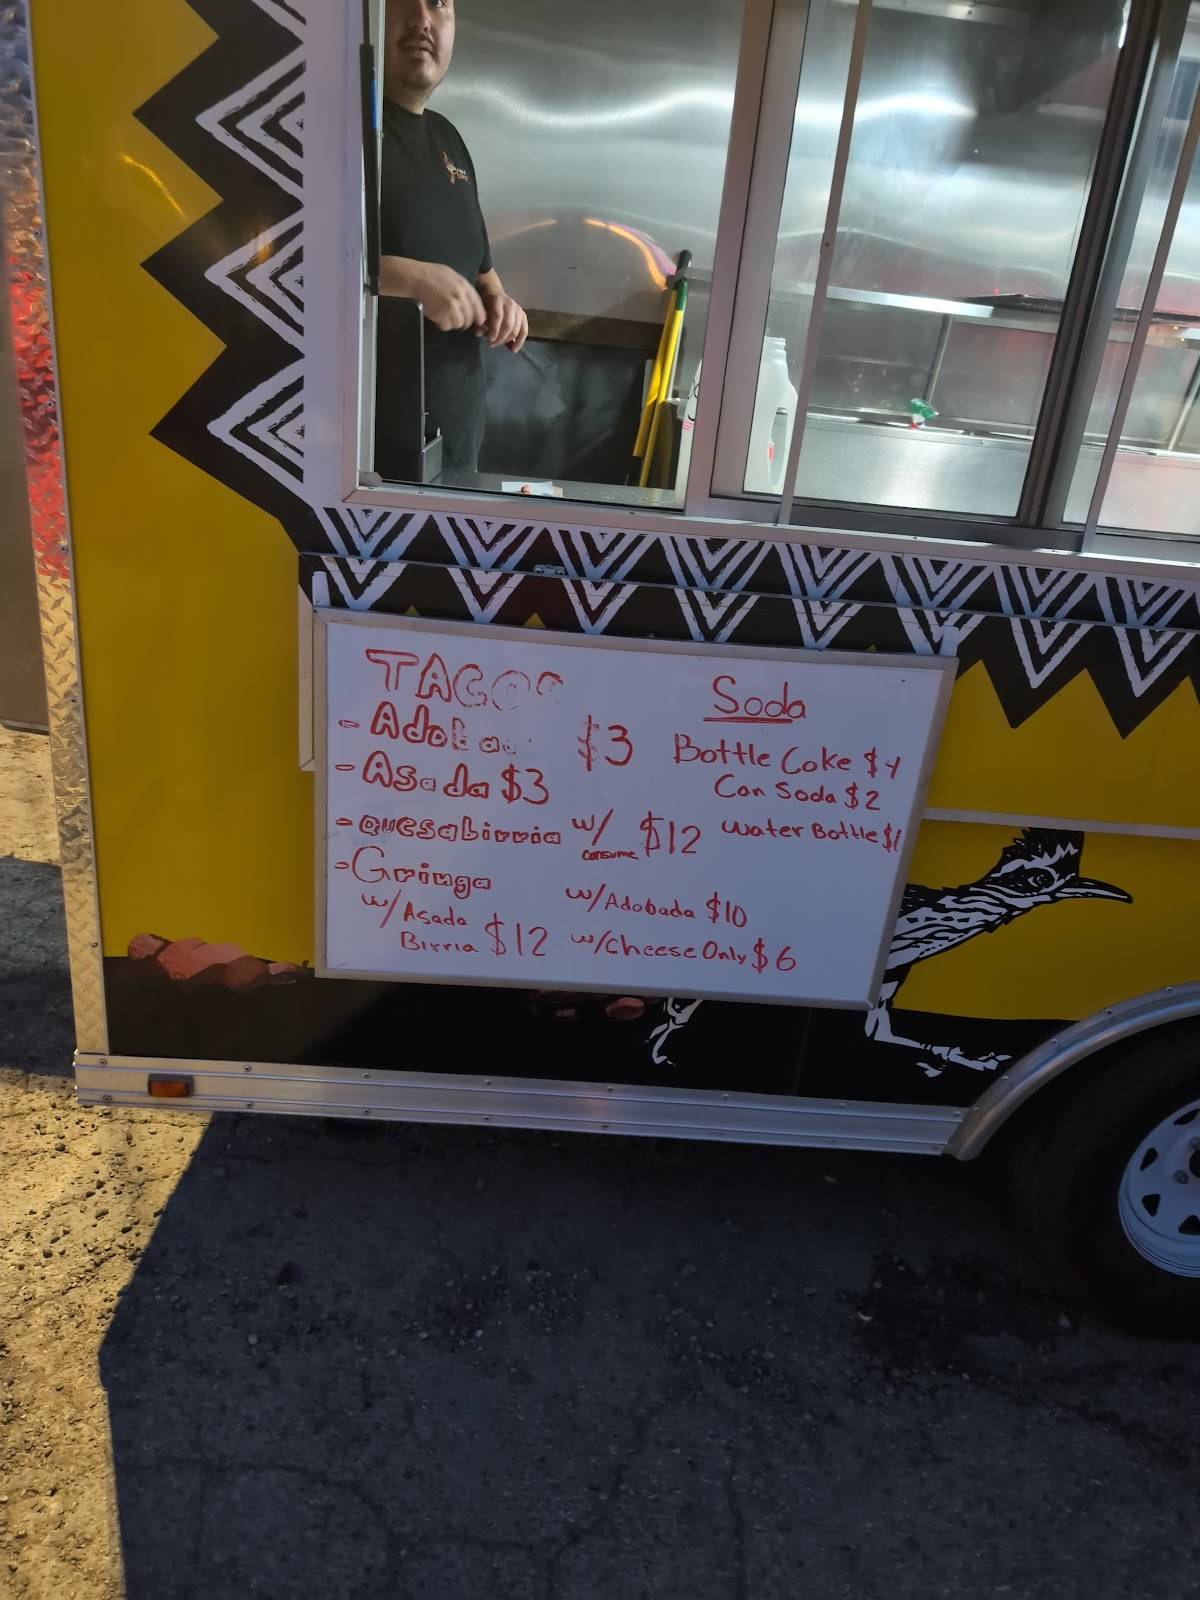 TACOS
- Adobada $3
- Asada $3
- quesabirria w/ consume $12
- Gringa
w/Asada
Birria $12
w/Adobada $10
w/Cheese Only $6
Soda
Bottle Coke $4
Can Soda $2
Water Bottle $1